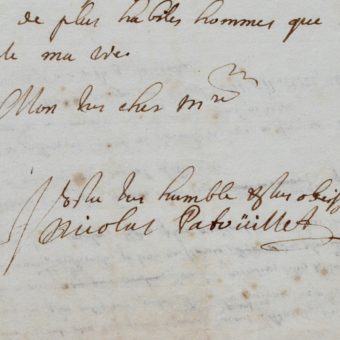 de plus habiles hommes que
de ma vie
Mon tres cher mr
Vostre tres humble & tres obeiss
Nicolas Patoüillet